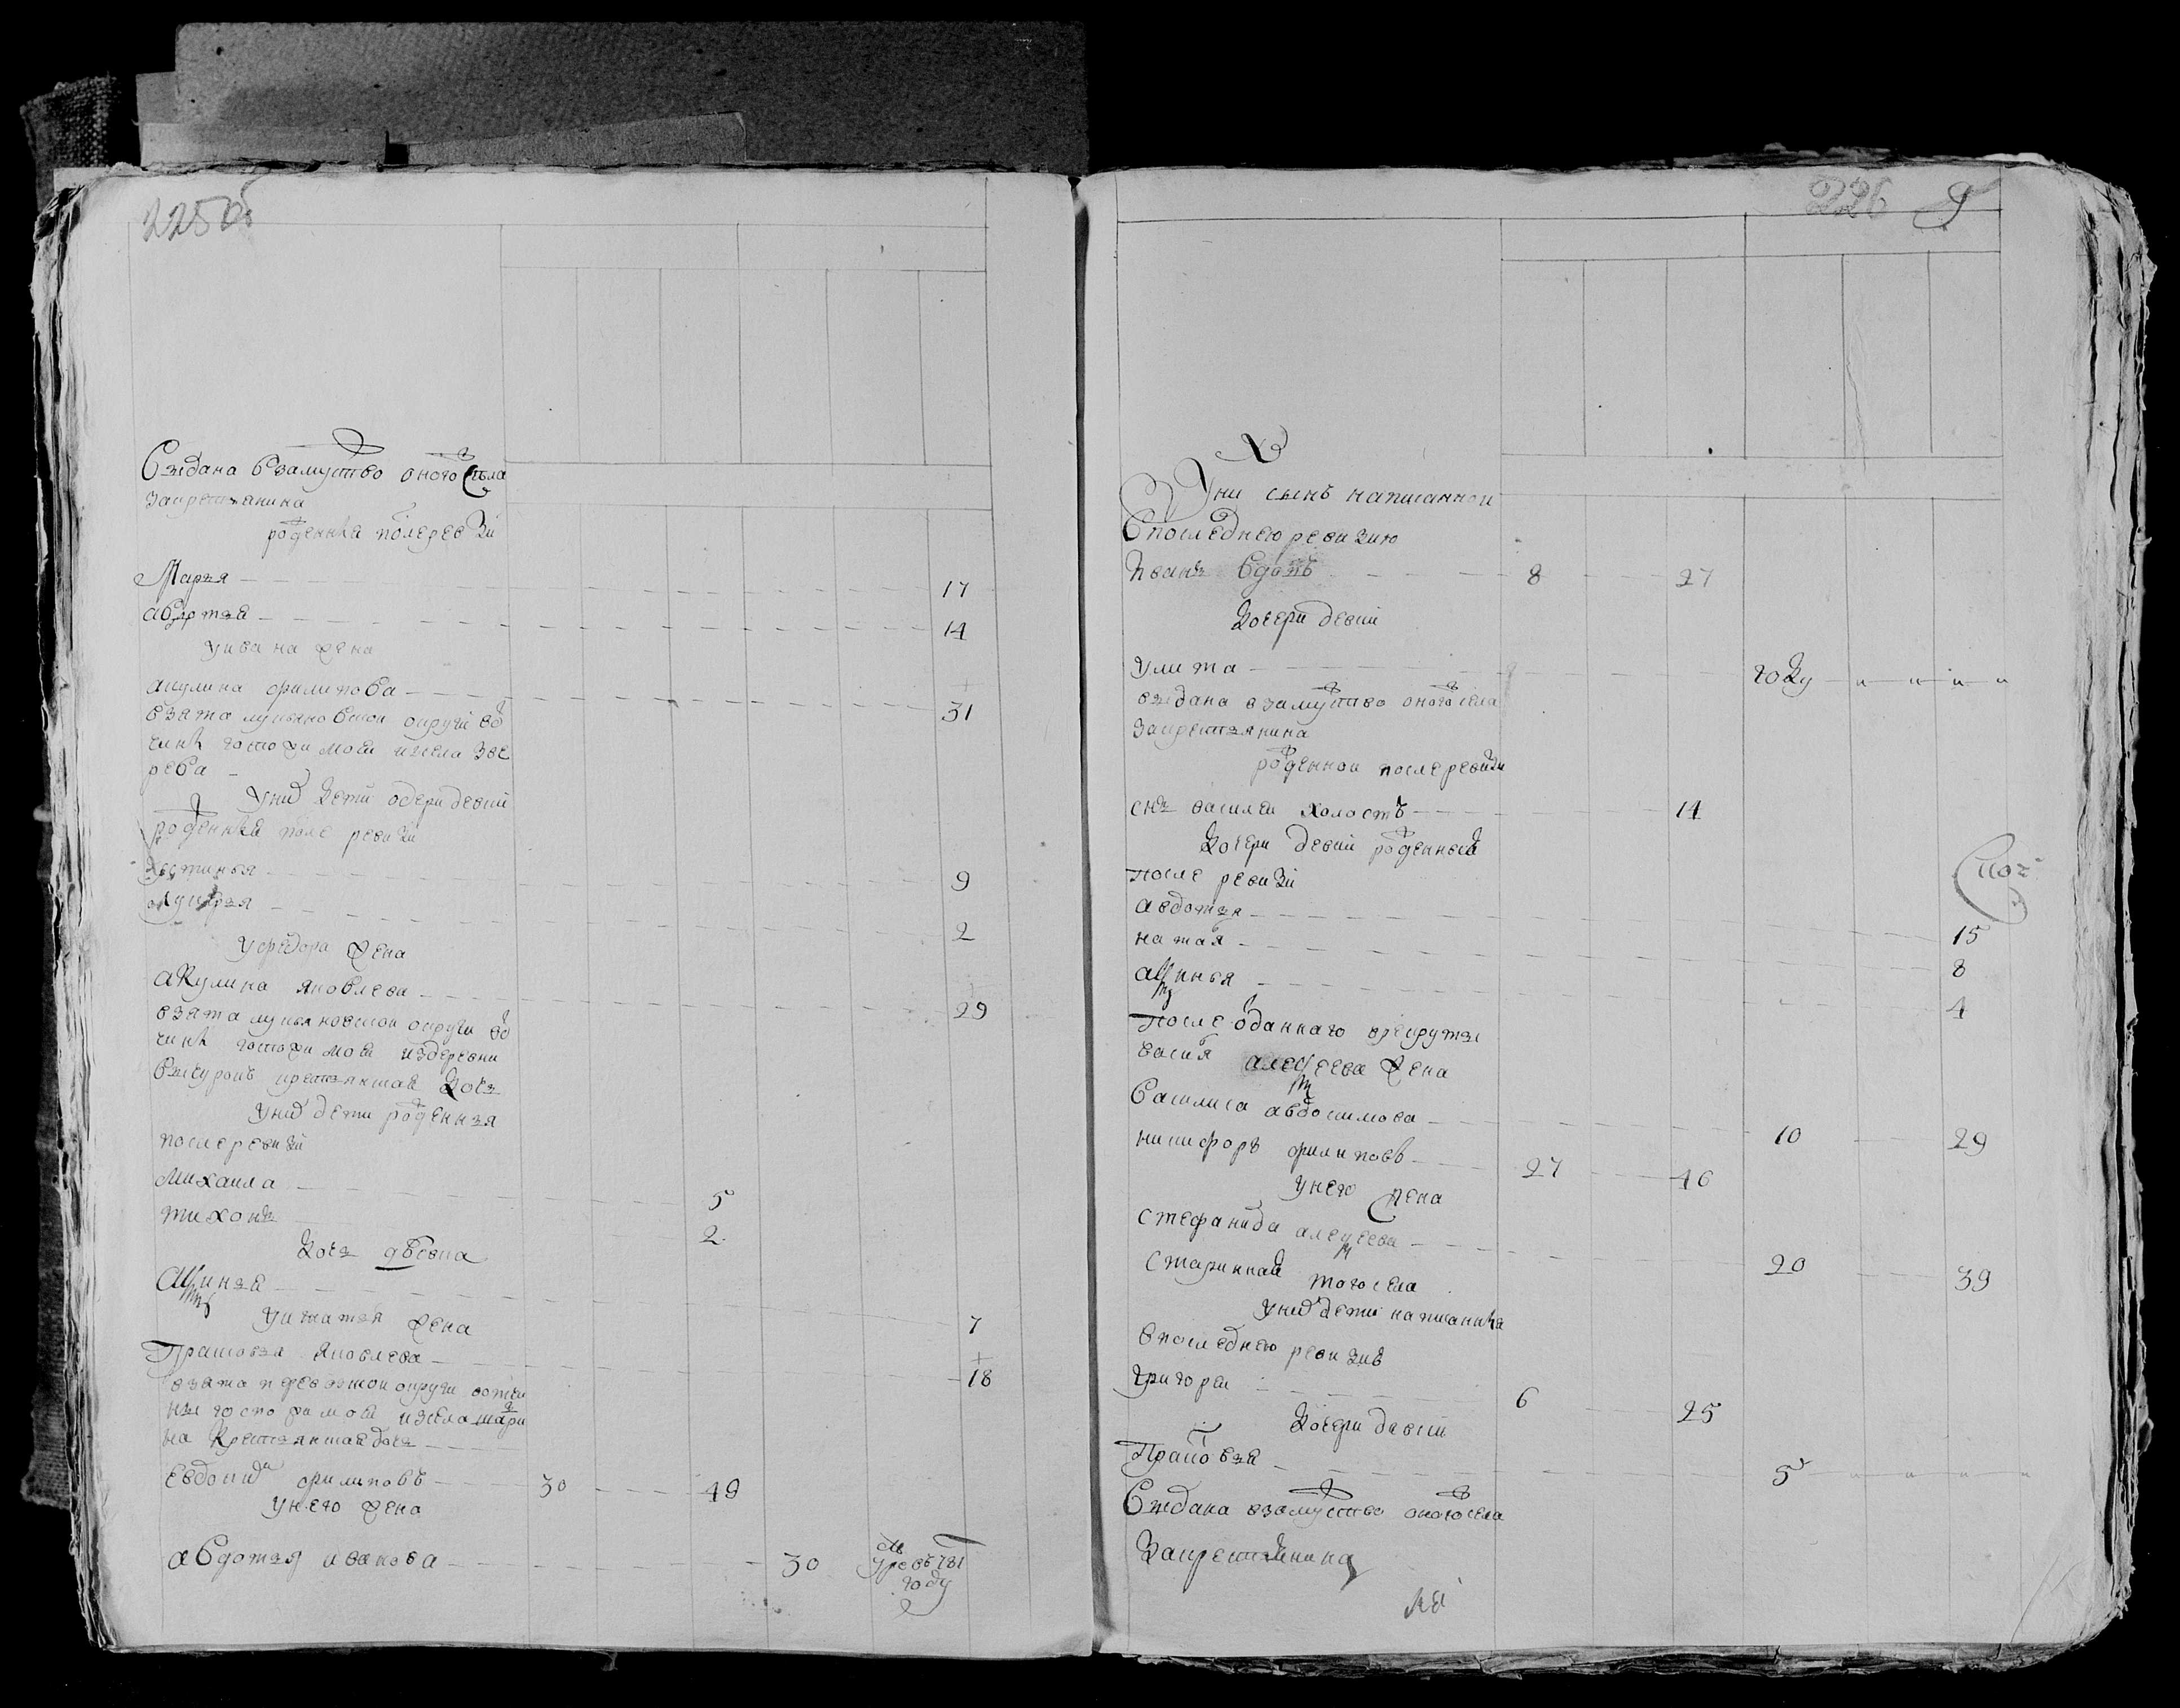 225 об
выдана взамуство оного села
закрестьянина
рожденныя после ревизи
Марья 17
авдотья 14
у ивана жена
акулина филипова 31
взята лукьяновской округи вот
чины госпожи моей изсела
рева
у них дети дочери девки
рожденныя после ревизи
устинья 9
лукерья 2
у федора жена
акулина яковлева 29
взята лукьяновской округи вот
чины госпожи моей издеревни
крестьянская дочь
у них дети рожденныя
после ревизи
михаила 5
тихонъ 2
дочь девка
аксинья 7
у игнатья жена
Прасковья яковлева 18
взята округи вотчи
ны госпожи моей изсела
на крестьянская дочь
Евдокимъ филиповъ 30 49
у него жена
авдотья иванова 30 умре въ 781 году
226
9
У них сынъ написанной
в последнею ревизию
Иванъ вдовъ 8 27
дочери девки
улита году " " " "
выдана взамуство оного села
закрестьянина
рожденной после ревизи
снъ василей холостъ 14
дочери девки рожденныя
после ревизи
авдотья 15
наталья 8
аксинья 4
после отданнаго врекруты
василья алексеева жена
Василиса авдокимова 10 29
никифоръ филиповъ 27 46
у него жена
стефанида алексеева 20 39
старинная того села
у них дети написанныя
в последнею ревизию
григорей 6 25
дочери девки
Прасковья 5 " " " "
выдана взамуство оного села
закрестьянина